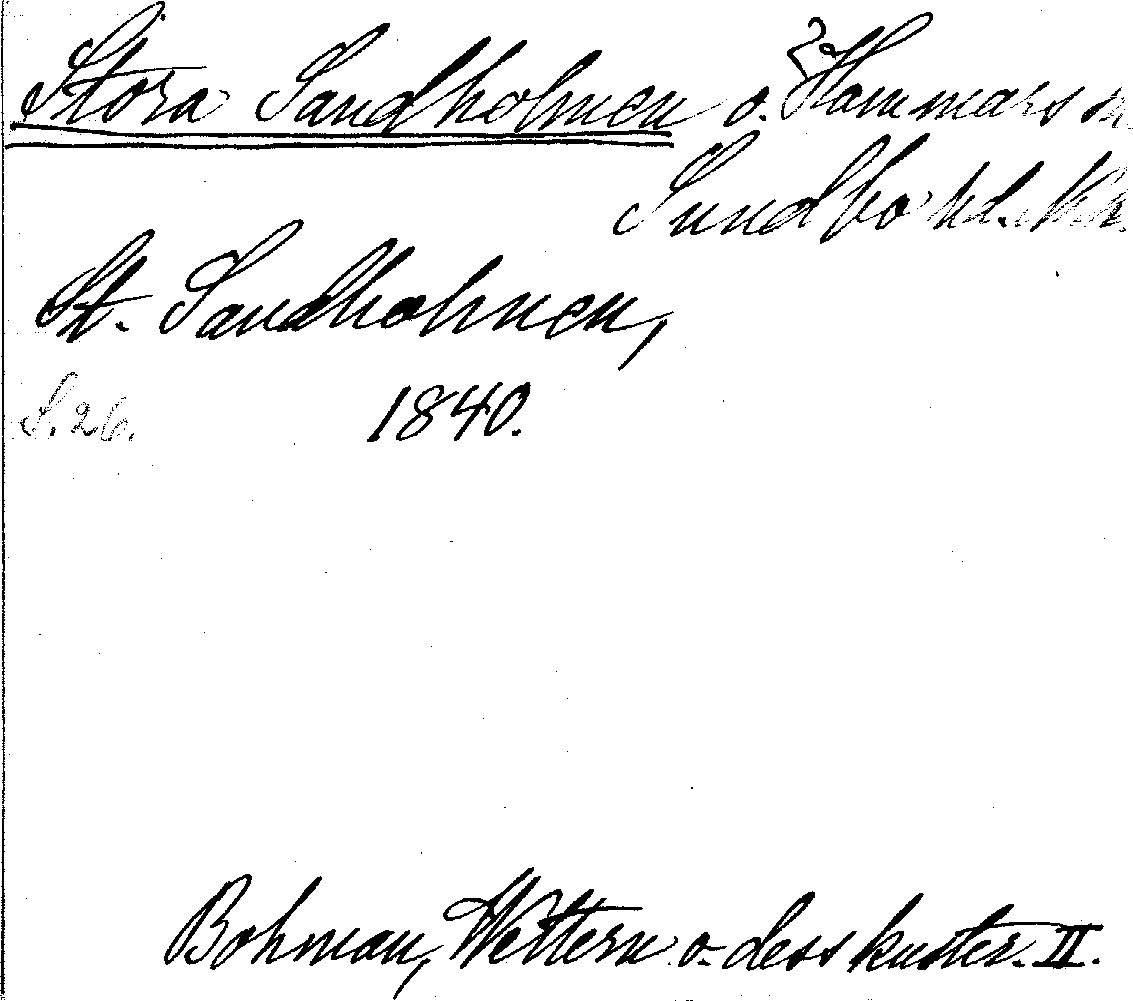 Stora Sandholmen ö. Hammars sn
Sundbo hd.
St. Sandholmen,
S. 26. 1840.
Bohman, Wettern o. dess kuster. II.